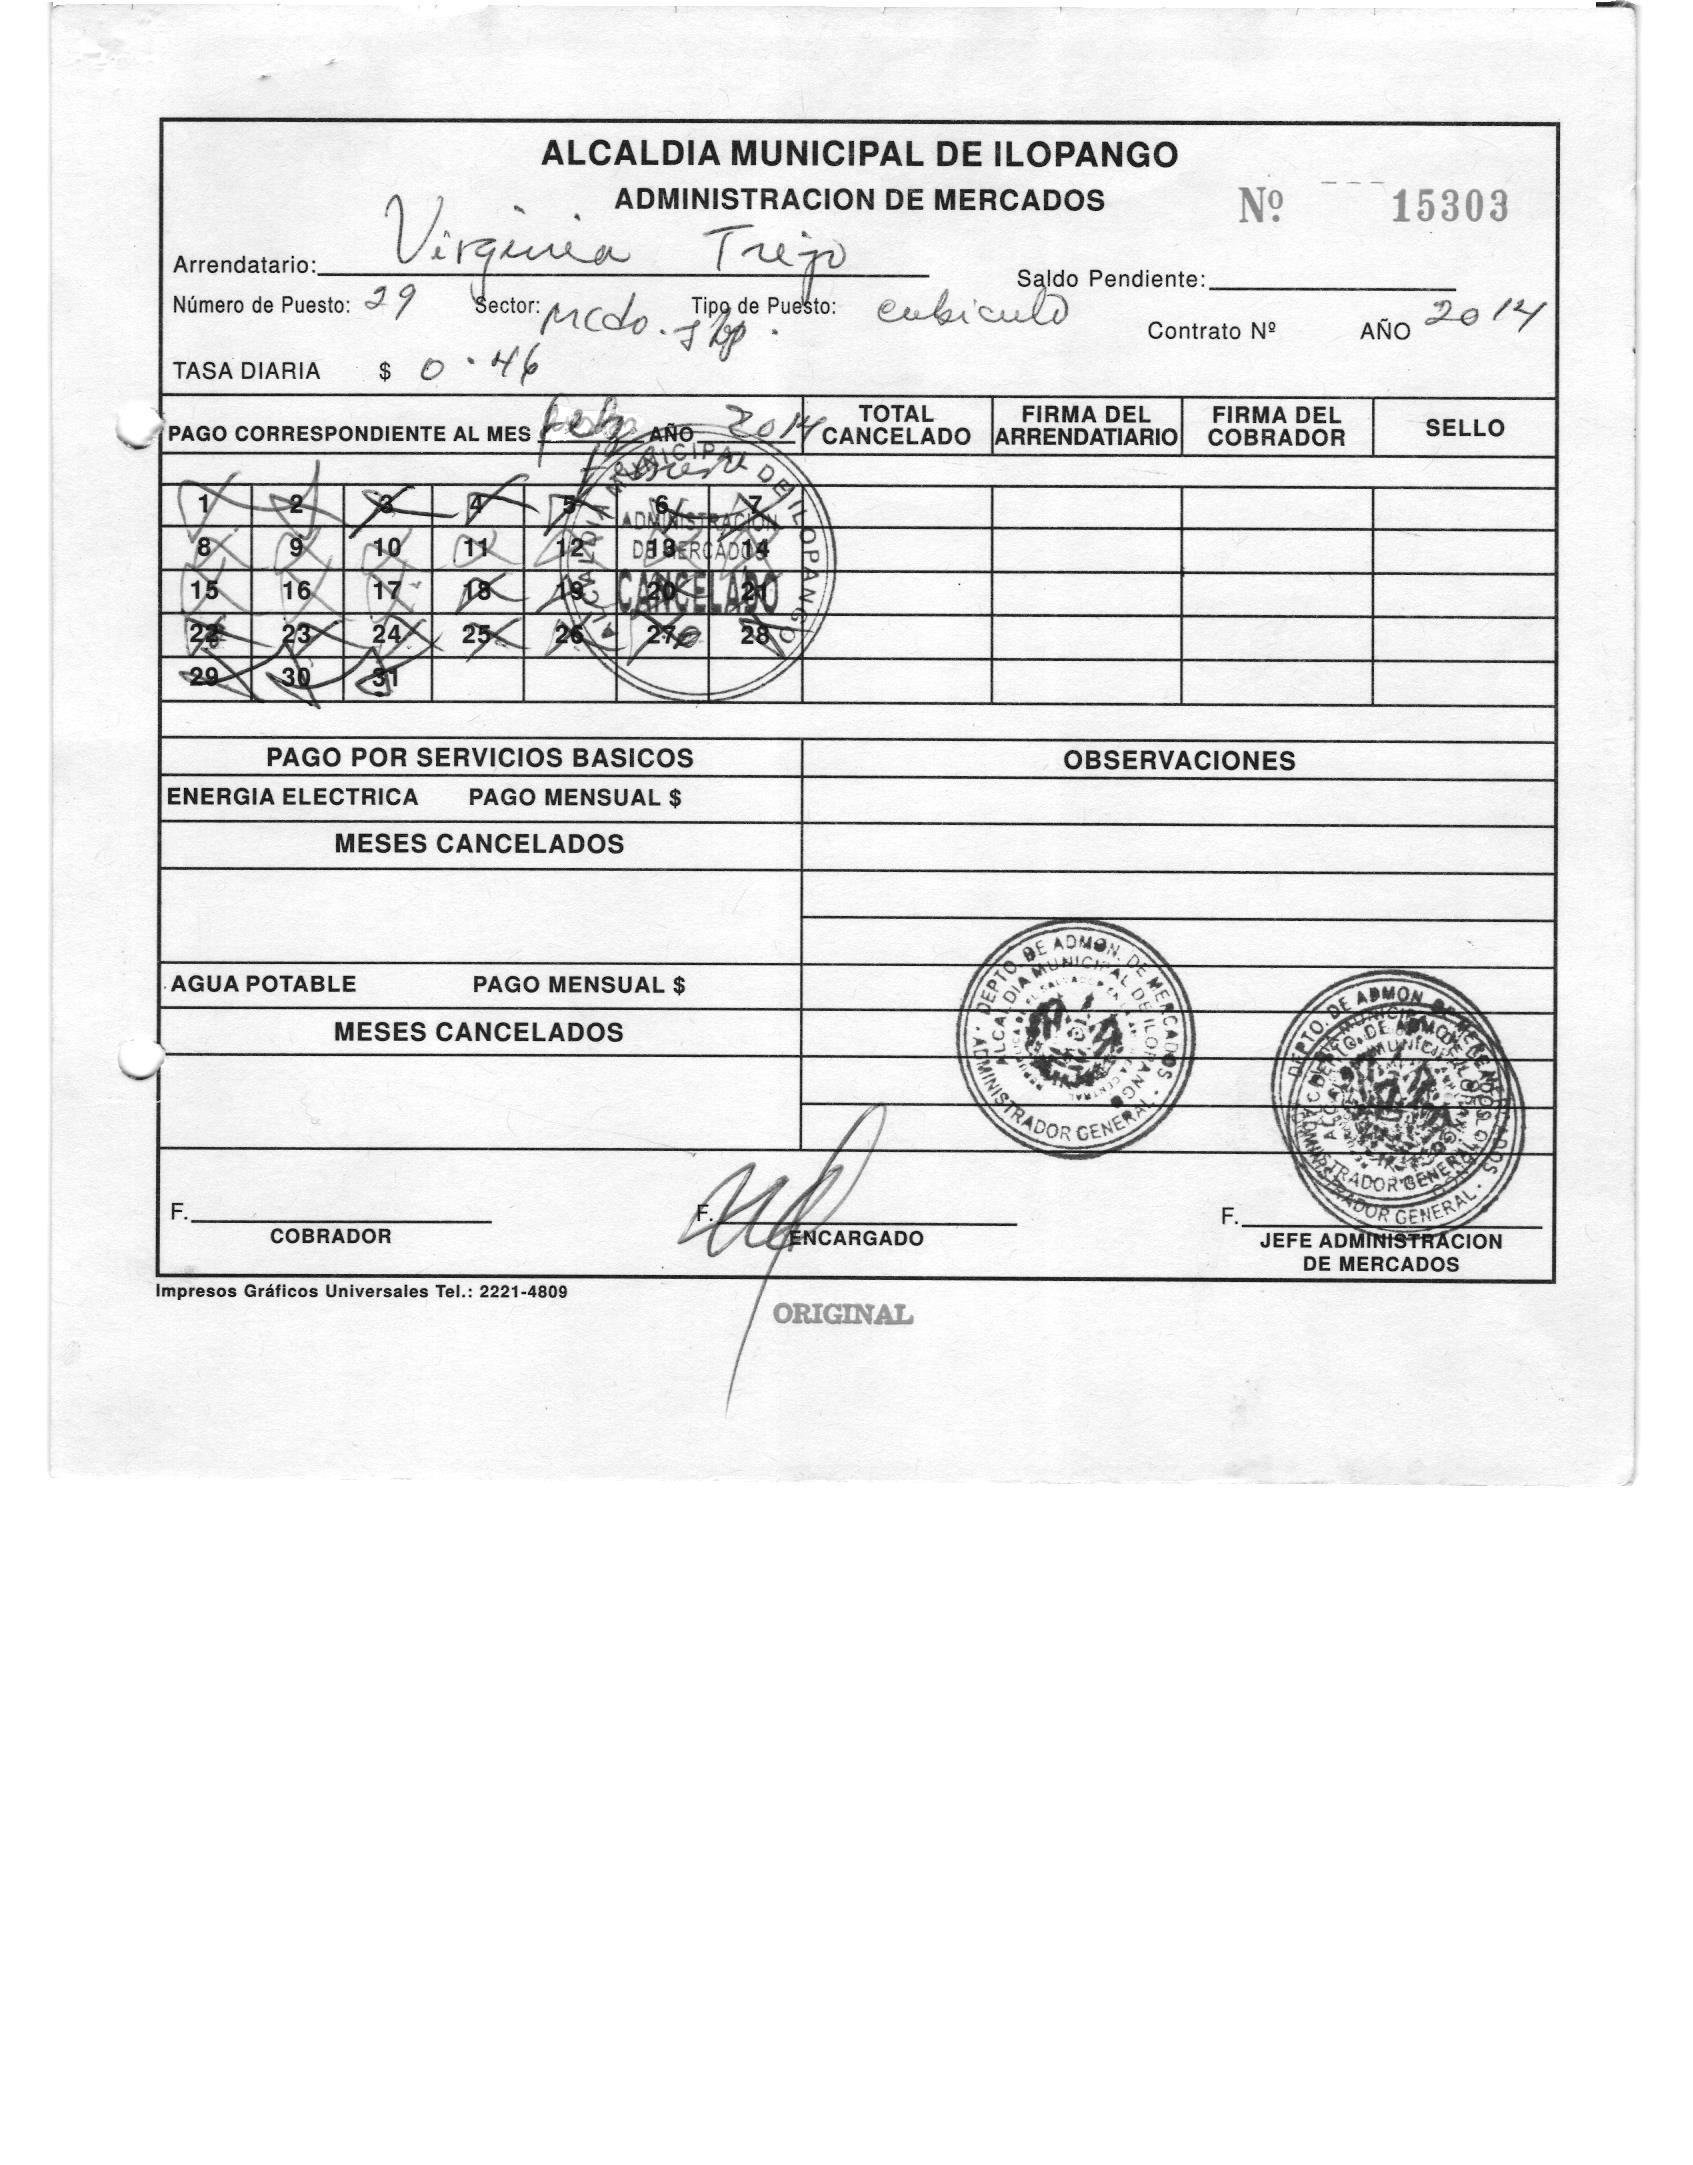 ALCALDIA MUNICIPAL DE ILOPANGO
ADMINISTRACION DE MERCADOS
Nº 15303
Arrendatario: Virginia Trejo
Saldo Pendiente:
Número de Puesto: 29 Sector: Mcdo. Tipo de Puesto: cubiculo
Contrato Nº AÑO 2014
TASA DIARIA $ 0.46
PAGO CORRESPONDIENTE AL MES AÑO 2014
TOTAL CANCELADO
FIRMA DEL ARRENDATIARIO
FIRMA DEL COBRADOR
SELLO
1 2 3 4 5 6 7
8 9 10 11 12 13 14
15 16 17 18 19 20 21
22 23 24 25 26 27 28
29 30 31
ALCALDIA MUNICIPAL DE ILOPANGO
ADMINISTRACION
DE MERCADOS
CANCELADO
PAGO POR SERVICIOS BASICOS
OBSERVACIONES
ENERGIA ELECTRICA PAGO MENSUAL $
MESES CANCELADOS
AGUA POTABLE PAGO MENSUAL $
MESES CANCELADOS
DEPTO. DE ADMON. DE MERCADOS
ALCALDIA MUNICIPAL DE ILOPANGO
ADMINISTRADOR GENERAL
DEPTO. DE ADMON. DE MERCADOS
ADMINISTRADOR GENERAL
F.
COBRADOR
F.
ENCARGADO
F.
JEFE ADMINISTRACION
DE MERCADOS
Impresos Gráficos Universales Tel.: 2221-4809
ORIGINAL